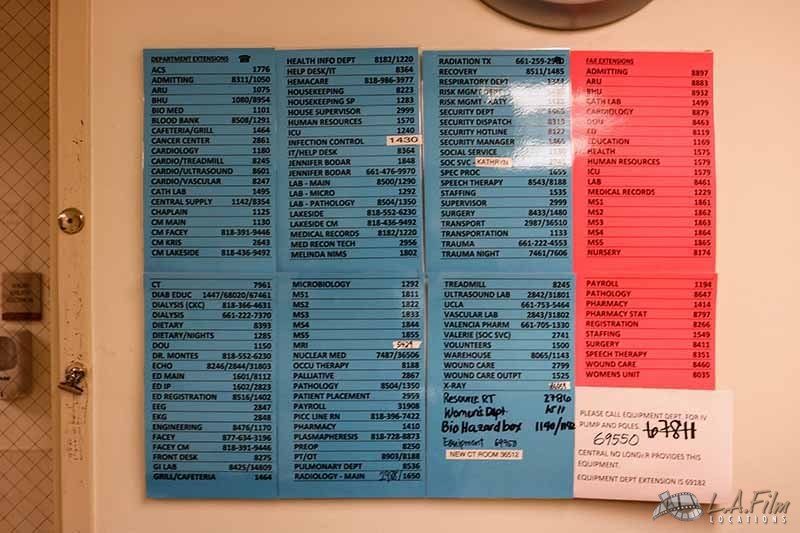 DEPARTMENT EXTENSIONS ☎
ACS 1776
ADMITTING 8311/1050
ARU 1075
BHU 1080/8954
BIO MED 1101
BLOOD BANK 8508/1291
CAFETERIA/GRILL 1464
CANCER CENTER 2861
CARDIOLOGY 1180
CARDIO/TREADMILL 8245
CARDIO/ULTRASOUND 8601
CARDIO/VASCULAR 8247
CATH LAB 1495
CENTRAL SUPPLY 1142/8354
CHAPLAIN 1125
CM MAIN 1130
CM FACEY 818-391-9446
CM KRIS 2643
CM LAKESIDE 818-436-9492
CT 7961
DIAB EDUC 1447/68020/67461
DIALYSIS (CKC) 818-366-4631
DIALYSIS 661-222-7370
DIETARY 8393
DIETARY/NIGHTS 1285
DOU 1150
DR. MONTES 818-552-6230
ECHO 8246/2844/31803
ED MAIN 1601/8112
ED IP 1602/2823
ED REGISTRATION 8516/1402
EEG 2847
EKG 2848
ENGINEERING 8476/1170
FACEY 877-634-3196
FACEY CM 818-391-9446
FRONT DESK 8275
GI LAB 8425/34809
GRILL/CAFETERIA 1464
HEALTH INFO DEPT 8182/1220
HELP DESK/IT 8364
HEMACARE 818-986-3977
HOUSEKEEPING 8223
HOUSEKEEPING SP 1283
HOUSE SUPERVISOR 2999
HUMAN RESOURCES 1570
ICU 1240
INFECTION CONTROL 1430
IT/HELP DESK 8364
JENNIFER BODAR 1848
JENNIFER BODAR 661-476-9970
LAB - MAIN 8500/1290
LAB - MICRO 1292
LAB - PATHOLOGY 8504/1350
LAKESIDE 818-552-6230
LAKESIDE CM 818-436-9492
MEDICAL RECORDS 8182/1220
MED RECON TECH 2956
MELINDA NIMS 1802
MICROBIOLOGY 1292
MS1 1811
MS2 1822
MS3 1833
MS4 1844
MS5 1855
MRI 5429
NUCLEAR MED 7487/36506
OCCU THERAPY 8188
PALLIATIVE 2867
PATHOLOGY 8504/1350
PATIENT PLACEMENT 2959
PAYROLL 31908
PICC LINE RN 818-396-7422
PHARMACY 1410
PLASMAPHERESIS 818-728-8873
PREOP 8250
PT/OT 8903/8188
PULMONARY DEPT 8536
RADIOLOGY - MAIN /1650
RADIATION TX
RECOVERY 8511/1485
RESPIRATORY DEPT
RISK MGMT DEPT
RISK MGMT - KATY
SECURITY DEPT
SECURITY DISPATCH
SECURITY HOTLINE 8122
SECURITY MANAGER
SOCIAL SERVICE
SOC SVC - KATHRYN
SPEC PROC 1655
SPEECH THERAPY 8543/8188
STAFFING 1535
SUPERVISOR 2999
SURGERY 8433/1480
TRANSPORT 2987/36510
TRANSPORTATION 1133
TRAUMA 661-222-4553
TRAUMA NIGHT 7461/7606
TREADMILL 8245
ULTRASOUND LAB 2842/31801
UCLA 661-753-5464
VASCULAR LAB 2843/31802
VALENCIA PHARM 661-705-1330
VALERIE (SOC SVC) 2741
VOLUNTEERS 1500
WAREHOUSE 8065/1143
WOUND CARE 2799
WOUND CARE OUTPT 1525
X-RAY
Resource RT 27816
Women's Dept 1511
Bio Hazard box
Equipment
NEW CT ROOM 36512
FAX EXTENSIONS
ADMITTING 8897
ARU 8883
BHU 8932
CATH LAB 1499
CARDIOLOGY 8879
DOU 8463
ED 8119
EDUCATION 1169
HEALTH 1575
HUMAN RESOURCES 1579
ICU 1579
LAB 8461
MEDICAL RECORDS 1229
MS1 1861
MS2 1862
MS3 1863
MS4 1864
MS5 1865
NURSERY 8174
PAYROLL 1194
PATHOLOGY 8647
PHARMACY 1414
PHARMACY STAT 8797
REGISTRATION 8266
STAFFING 1549
SURGERY 8411
SPEECH THERAPY 8351
WOUND CARE 8460
WOMENS UNIT 8035
PLEASE CALL EQUIPMENT DEPT. FOR IV
PUMP AND POLES. 67811
69550
CENTRAL NO LONGER PROVIDES THIS
EQUIPMENT.
EQUIPMENT DEPT EXTENSION IS 69182
L.A.Film
LOCATIONS